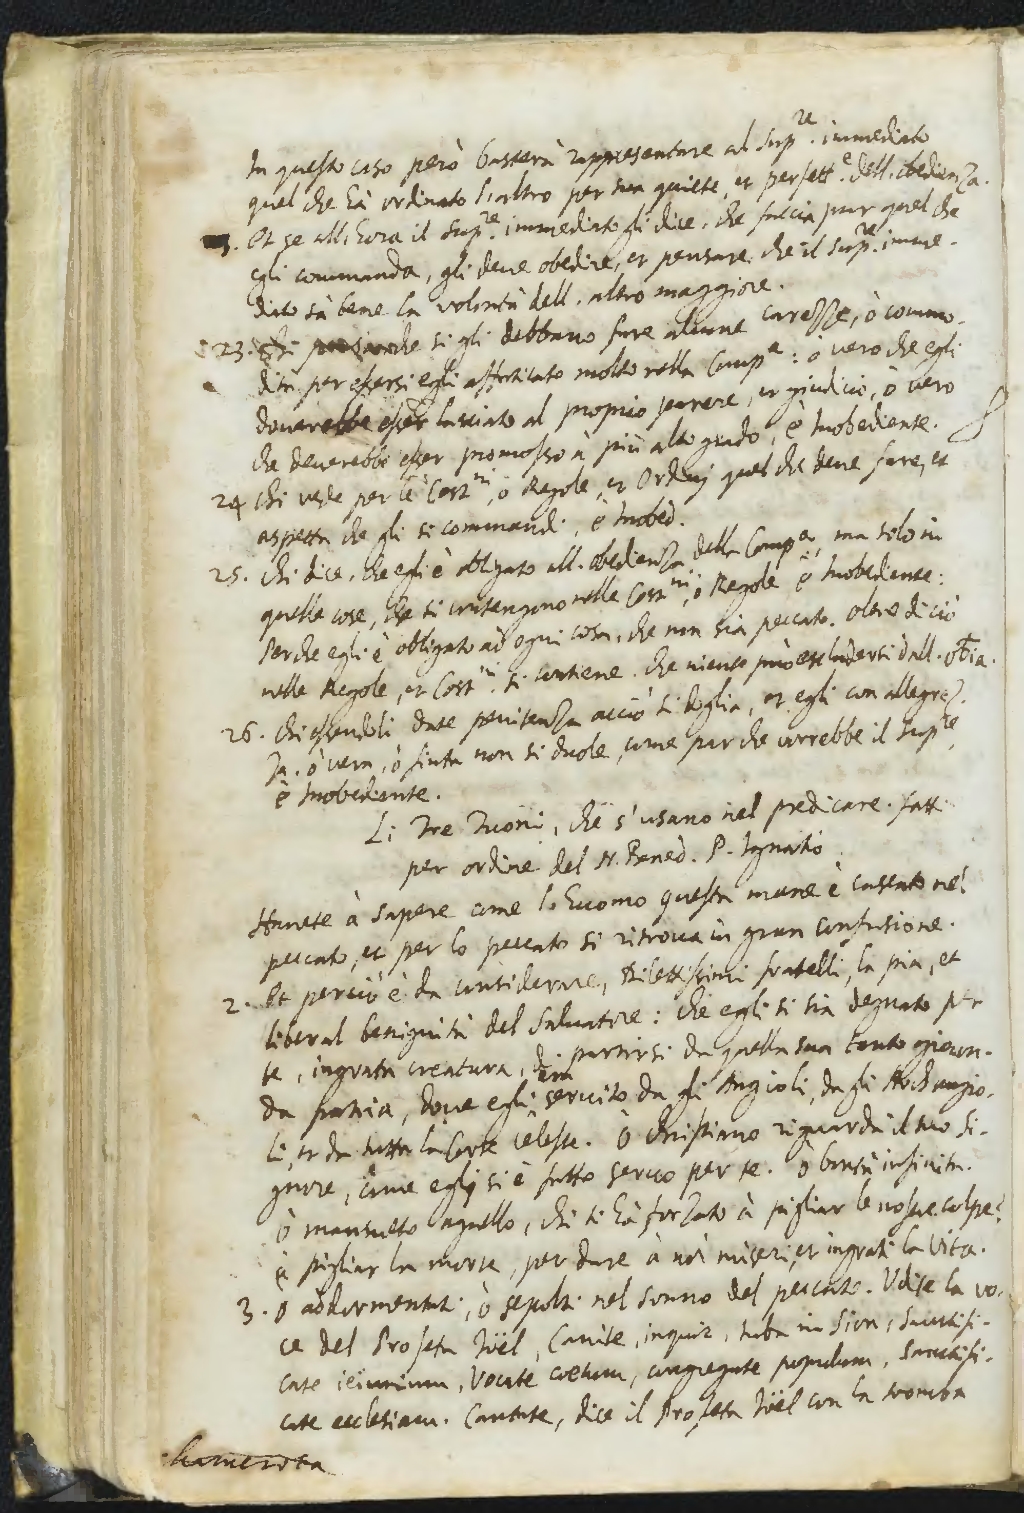 In questo caso però basterà rappresentare al Sup.re immediato
quel che hà ordinato l'altro per sua quiete, et perfett.e dell'obedienza.
Et se all'hora il Sup.re immediato gli dice, che faccia pur quel che
egli commanda, gli deve obedire, et pensare che il Sup.re imme-
diato sà bene la volontà dell'altro maggiore.
23. che si gli debbano fare alcune carezze, ò commo-
dità per essersi egli affaticato molto nella Comp.a: ò vero che egli
doverebbe esser lasciato al proprio parere, et giudicio, ò vero
che deverebbe esser promosso à più alto grado, è Inobediente.
24 Chi vede per le Cost.ni, ò Regole, et Ordinj quel che deve fare, et
aspetta che gli si commandi, è Inobed.
25. Chi dice, che egli è obligato all'obedienza della Comp.a, ma solo in
quelle cose, che si contengono nelle Cost.ni, ò Regole è Inobediente:
Perche egli è obligato ad ogni cosa, che non sia peccato. oltre di ciò
nelle Regole, et Cost.ni si contiene che niente può escludersi dall'obia.
26. Chi essendoli date penitenza acciò si doglia, et egli con allegrez-
za, ò vera, ò finta non si duole, come par che vorrebbe il Sup.re,
è Inobediente.
Li Tre Tuoni, che s'usano nel predicare. fatti
per ordine del N. Bened. P. Ignatio
Havete à sapere come l'huomo questa mane è cascato nel
peccato, et per lo peccato si ritrova in gran confusione.
2. Et perciò è da considerare, Dilettissimi fratelli, la pia, et
liberal benignità del Salvatore: che egli si sia degnato per
te, ingrata creatura, di partirsi da quella sua tanto giocon-
da patria, dove egli era servito da gli Angioli, da gli Archangio-
li, et da tutta la Corte celeste. ò Christiano riguarda il tuo Si-
gnore, come eglj si è fatto servo per te. ò bontà infinita.
ò mansueto agnello, chi ti hà forzato à pigliar le nostre colpe?
à pigliar la morte, per dare à noi miseri, et ingrati la Vita.
3. ò addormentati, ò sepolti nel sonno del peccato. Udite la vo-
ce del Profeta Joël, Canite, inquit, tuba in Sion, Sanctifi-
cate ieiunium, Vocate coetum, congregate populum, Sanctifi-
cate ecclesiam. Cantate, dice il Profeta Joël con la tromba